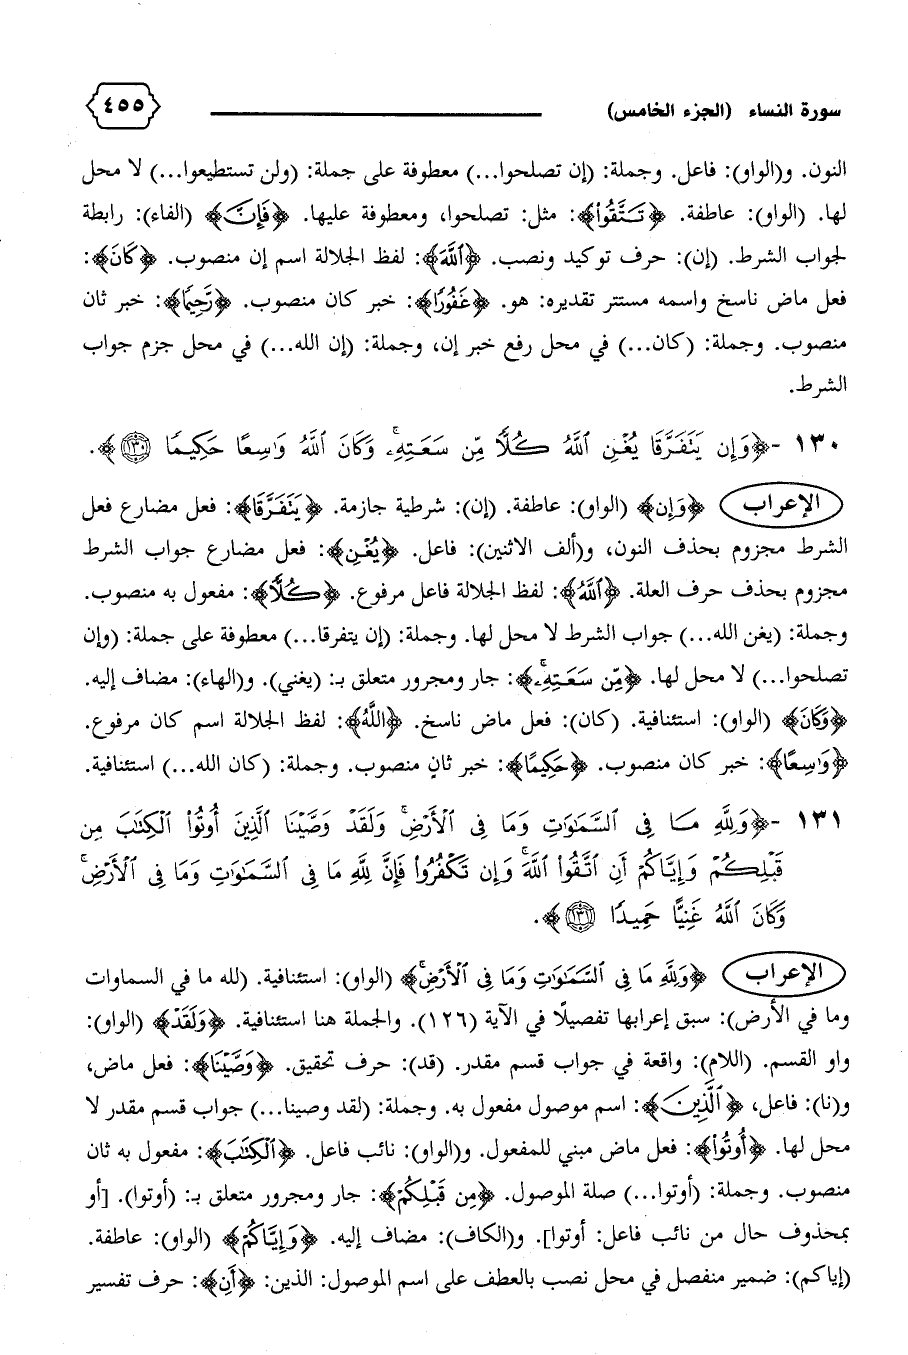 سورة النساء (الجزء الخامس) ٤٥٥
النون. و(الواو): فاعل. وجملة: (إن تصلحوا...) معطوفة على جملة: (ولن تستطيعوا...) لا محل
لها. (الواو): عاطفة. ﴿تَتَّقُوا۟﴾: مثل: تصلحوا، ومعطوفة عليها. ﴿فَإِنَّ﴾ (الفاء): رابطة
لجواب الشرط. (إن): حرف توكيد ونصب. ﴿ٱللَّهَ﴾: لفظ الجلالة اسم إن منصوب. ﴿كَانَ﴾:
فعل ماض ناسخ واسمه مستتر تقديره: هو. ﴿غَفُورًا﴾: خبر كان منصوب. ﴿رَّحِيمًا﴾: خبر ثان
منصوب. وجملة: (كان...) في محل رفع خبر إن، وجملة: (إن الله...) في محل جزم جواب
الشرط.
١٣٠ - ﴿وَإِن يَتَفَرَّقَا يُغْنِ ٱللَّهُ كُلًّا مِّن سَعَتِهِۦ ۚ وَكَانَ ٱللَّهُ وَٰسِعًا حَكِيمًا ١٣٠﴾.
الإعراب ﴿وَإِن﴾ (الواو): عاطفة. (إن): شرطية جازمة. ﴿يَتَفَرَّقَا﴾: فعل مضارع فعل
الشرط مجزوم بحذف النون، و(ألف الاثنين): فاعل. ﴿يُغْنِ﴾: فعل مضارع جواب الشرط
مجزوم بحذف حرف العلة. ﴿ٱللَّهُ﴾: لفظ الجلالة فاعل مرفوع. ﴿كُلًّا﴾: مفعول به منصوب.
وجملة: (يغن الله...) جواب الشرط لا محل لها. وجملة: (إن يتفرقا...) معطوفة على جملة: (وإن
تصلحوا...) لا محل لها. ﴿مِّن سَعَتِهِۦ ۚ﴾: جار ومجرور متعلق بـ: (يغني). و(الهاء): مضاف إليه.
﴿وَكَانَ﴾ (الواو): استئنافية. (كان): فعل ماض ناسخ. ﴿ٱللَّهُ﴾: لفظ الجلالة اسم كان مرفوع.
﴿وَٰسِعًا﴾: خبر كان منصوب. ﴿حَكِيمًا﴾: خبر ثانٍ منصوب. وجملة: (كان الله...) استئنافية.
١٣١ - ﴿وَلِلَّهِ مَا فِى ٱلسَّمَٰوَٰتِ وَمَا فِى ٱلْأَرْضِ ۗ وَلَقَدْ وَصَّيْنَا ٱلَّذِينَ أُوتُوا۟ ٱلْكِتَٰبَ مِن
قَبْلِكُمْ وَإِيَّاكُمْ أَنِ ٱتَّقُوا۟ ٱللَّهَ ۚ وَإِن تَكْفُرُوا۟ فَإِنَّ لِلَّهِ مَا فِى ٱلسَّمَٰوَٰتِ وَمَا فِى ٱلْأَرْضِ ۚ
وَكَانَ ٱللَّهُ غَنِيًّا حَمِيدًا ١٣١﴾.
الإعراب ﴿وَلِلَّهِ مَا فِى ٱلسَّمَٰوَٰتِ وَمَا فِى ٱلْأَرْضِ ۗ﴾ (الواو): استئنافية. (لله ما في السماوات
وما في الأرض): سبق إعرابها تفصيلًا في الآية (١٢٦). والجملة هنا استئنافية. ﴿وَلَقَدْ﴾ (الواو):
واو القسم. (اللام): واقعة في جواب قسم مقدر. (قد): حرف تحقيق. ﴿وَصَّيْنَا﴾: فعل ماض،
و(نا): فاعل، ﴿ٱلَّذِينَ﴾: اسم موصول مفعول به. وجملة: (لقد وصينا...) جواب قسم مقدر لا
محل لها. ﴿أُوتُوا۟﴾: فعل ماض مبني للمفعول. و(الواو): نائب فاعل. ﴿ٱلْكِتَٰبَ﴾: مفعول به ثان
منصوب. وجملة: (أوتوا...) صلة الموصول. ﴿مِن قَبْلِكُمْ﴾: جار ومجرور متعلق بـ: (أوتوا). [أو
بمحذوف حال من نائب فاعل: أوتوا]. و(الكاف): مضاف إليه. ﴿وَإِيَّاكُمْ﴾ (الواو): عاطفة.
(إياكم): ضمير منفصل في محل نصب بالعطف على اسم الموصول: الذين: ﴿أَنِ﴾: حرف تفسير